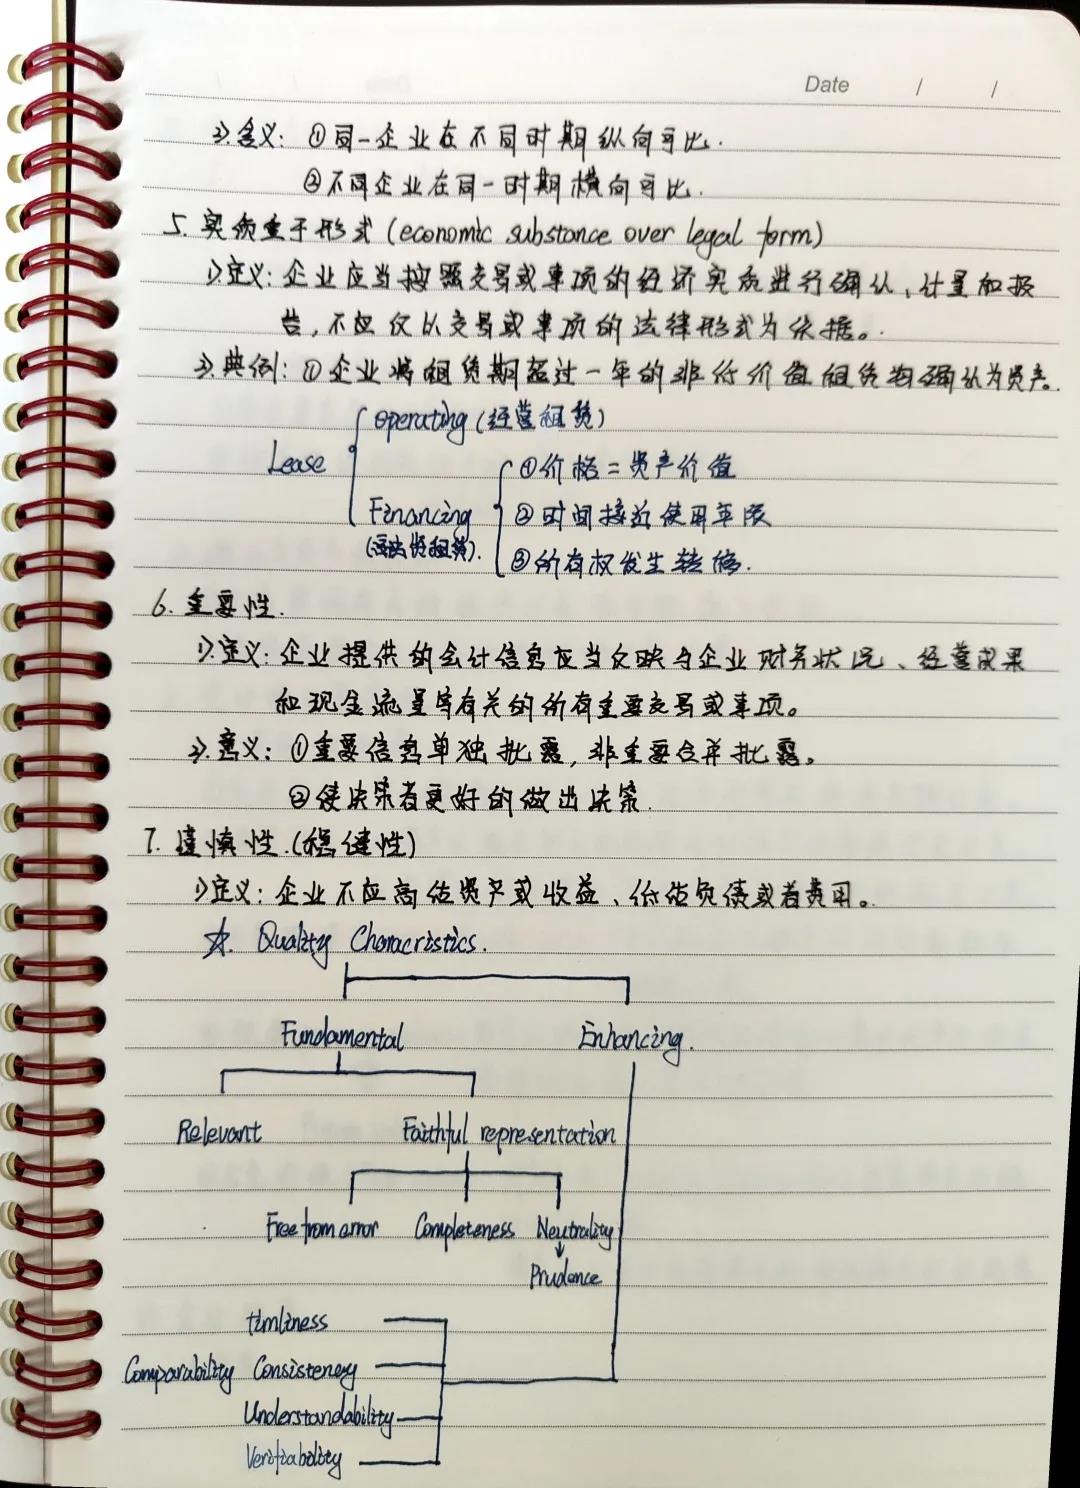 Date / /
2). 含义: ①同一企业在不同时期纵向可比.
②不同企业在同一时期横向可比.
5. 实质重于形式 (economic substance over legal form)
1)定义: 企业应当按照交易或事项的经济实质进行确认、计量和报
告,不应仅以交易或事项的法律形式为依据。
2). 典例: ①企业将租赁期超过一年的非低价值租赁均确认为资产.
Operating (经营租赁)
Lease
①价格=资产价值
Financing ②时间接近使用年限
(融资租赁). ③所有权发生转移.
6. 重要性.
1). 定义: 企业提供的会计信息应当反映与企业财务状况、经营成果
和现金流量等有关的所有重要交易或事项。
2). 意义: ①重要信息单独批露,非重要合并批露。
②使决策者更好的做出决策.
7. 谨慎性.(稳健性)
1)定义: 企业不应高估资产或收益、低估负债或者费用。
☆. Quality Choracristics.
Fundamental Enhancing.
Relevant Faithful representation
Free from error Completeness Neutrality
Prudence
timliness
Comparability Consistency
Understandability
Verifiability